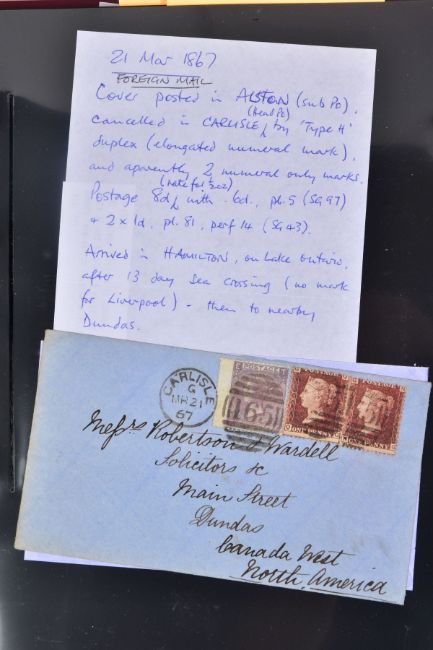 21 Mar 1867
FOREIGN MAIL
Cover posted in ALSTON (sub Po),
cancelled in CARLISLE (head Po) by 'Type H'
duplex (elongated numeral mark),
and aparently 2 numeral only marks.
Postage 8d (rate for ½oz) with 6d, pl. 5 (SG 97)
+ 2 x 1d, pl. 81, perf 14 (SG 43).
Arrived in HAMILTON, on Lake Ontario,
after 13 day sea crossing (no mark
for Liverpool) - then to nearby
Dundas.
CARLISLE
G
MR 21
67
165
POSTAGE
ONE PENNY
ONE PENNY
Messrs Robertson & Wardell
Solicitors &c
Main Street
Dundas
Canada West
North America